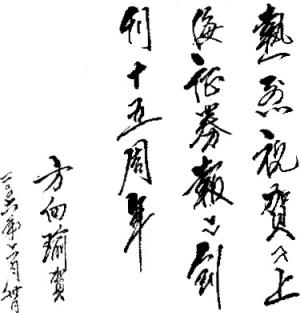 熱烈祝贺《上
海证券報》创
刊十五周年
方向瑜賀
二〇〇六年六月